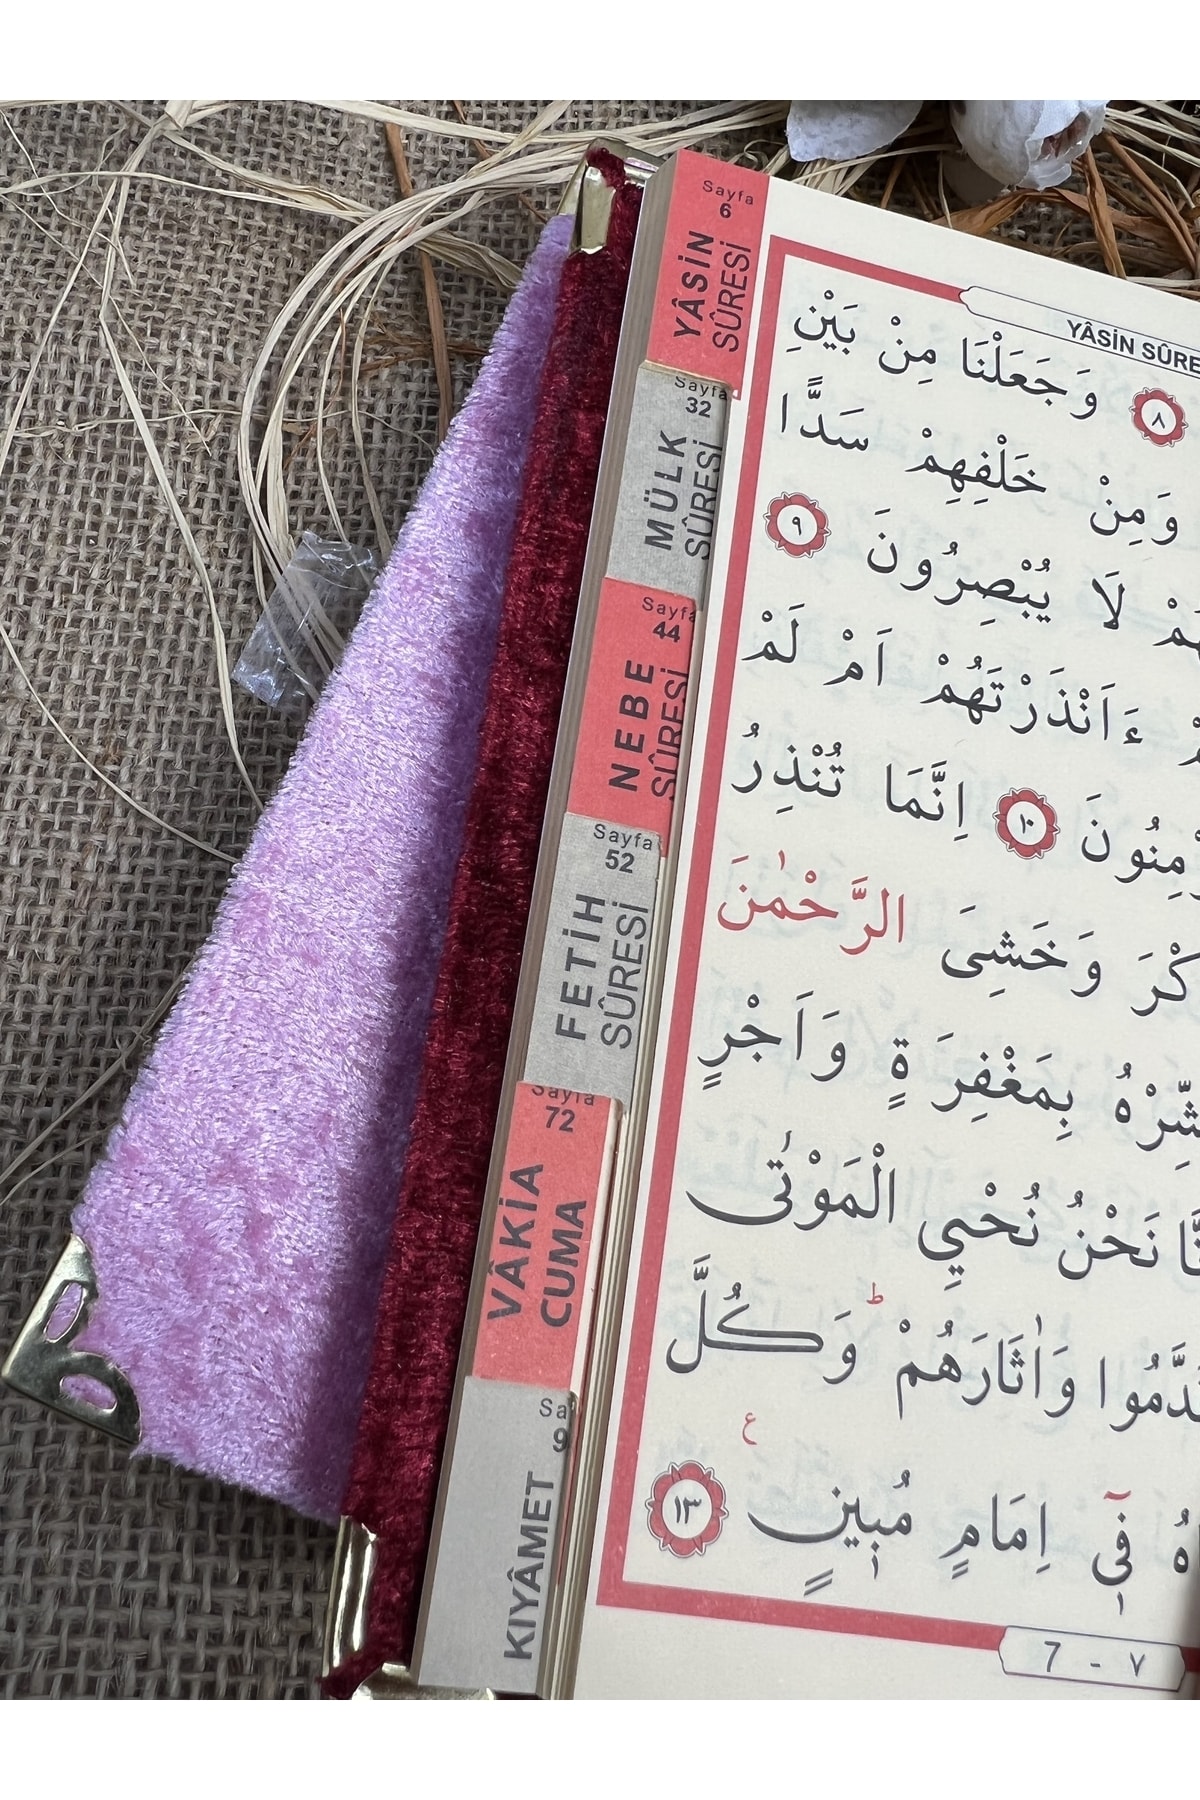 Sayfa
6
YÂSİN
SÛRESİ
Sayfa
32
MÜLK
SÛRESİ
Sayfa
44
NEBE
SÛRESİ
Sayfa
52
FETİH
SÛRESİ
Sayfa
72
VÂKİA
CUMA
Sa
9
KIYÂMET
YÂSİN SÛRE
٨ وَجَعَلْنَا مِنْ بَيْنِ
وَمِنْ خَلْفِهِمْ سَدًّا
لَا يُبْصِرُونَ ٩
ءَاَنْذَرْتَهُمْ اَمْ لَمْ
١٠ اِنَّمَا تُنْذِرُ
وَخَشِىَ الرَّحْمٰنَ
بِمَغْفِرَةٍ وَاَجْرٍ
نَحْنُ نُحْيِي الْمَوْتٰى
وَاٰثَارَهُمْ ط وَكُلَّ
فٓي اِمَامٍ مُبٖينٍ ع ١٣
7 - ٧